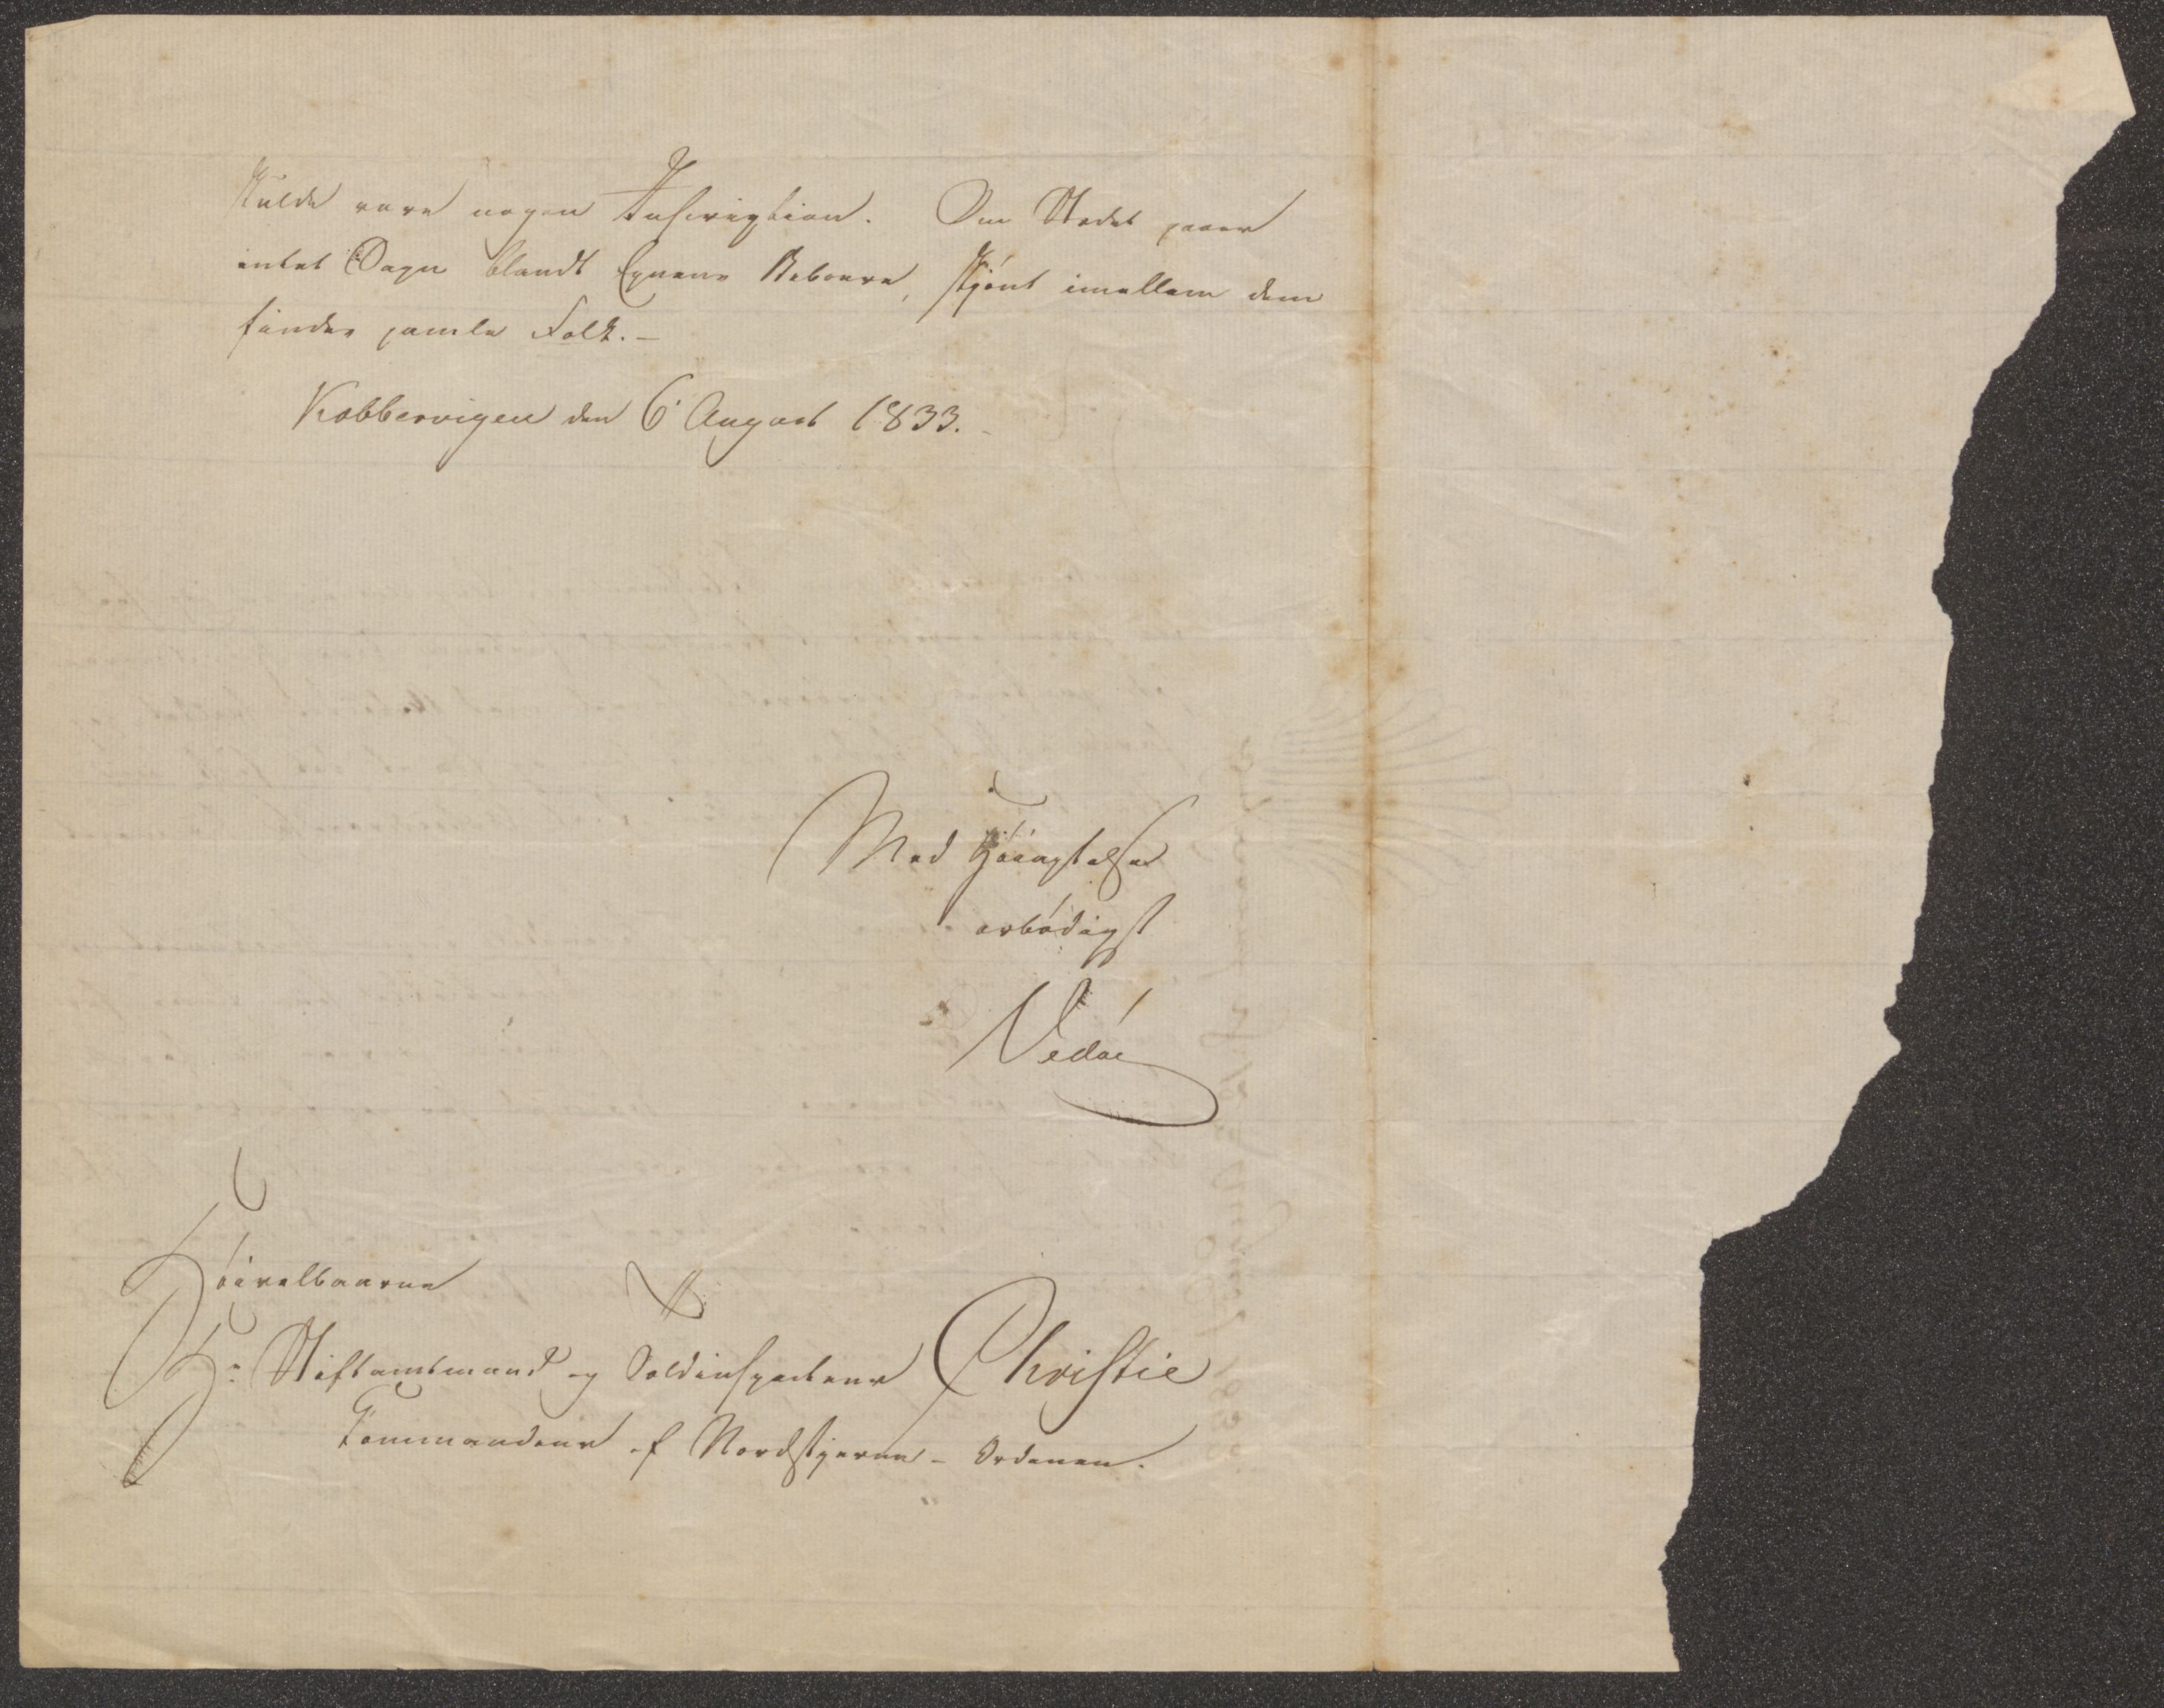 skulde være nogen Inscription. Om Stedet gaaer
intet Sagn blandt Egnens Beboere, skjönt imellem dem
findes gamle Folk. –
Kobbervigen den 6 August 1833.
Med Höiagtelse
ærbödigst
Vedöe
Höivelbaarne
Hr Stiftamtmand og Toldinspecteur Christie
Commandeur af Nordstjerne-Ordenen.